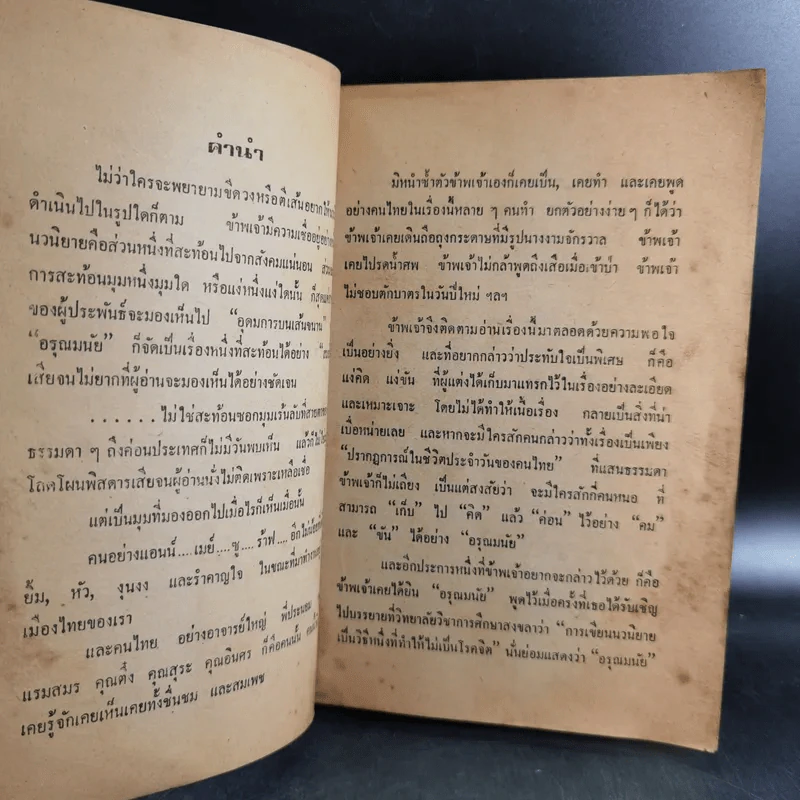 คำนำ
ไม่ว่าใครจะพยายามขีดวงหรือตีเส้นอยากให้
ดำเนินไปในรูปใดก็ตาม ข้าพเจ้ามีความเชื่ออยู่
นวนิยายคือส่วนหนึ่งที่สะท้อนไปจากสังคมแน่นอน
การสะท้อนมุมหนึ่งมุมใด หรือแง่หนึ่งแง่ใดนั้น
ของผู้ประพันธ์จะมองเห็นไป “อุดมการบนเส้นขนาน”
“อรุณมนัย” ก็จัดเป็นเรื่องหนึ่งที่สะท้อนได้อย่าง
เสียจนไม่ยากที่ผู้อ่านจะมองเห็นได้อย่างชัดเจน
......ไม่ใช่สะท้อนซอกมุมเร้นลับที่สายตา
ธรรมดา ๆ ถึงค่อนประเทศก็ไม่มีวันพบเห็น
โลดโผนพิสดารเสียจนผู้อ่านนั่งไม่ติดเพราะเหลือเชื่อ
แต่เป็นมุมที่มองออกไปเมื่อไรก็เห็นเมื่อนั้น
คนอย่างแอนน์....เมย์....ซู....ร้าฟ....
ยิ้ม, หัว, งุนงง และรำคาญใจ ในขณะที่มาทำงาน
เมืองไทยของเรา
และคนไทย อย่างอาจารย์ใหญ่
แรมสมร คุณติ๋ง คุณสุระ คุณอินศร ก็คือคนนั้น
เคยรู้จักเคยเห็นเคยทั้งชื่นชม และสมเพช
มิหนำซ้ำตัวข้าพเจ้าเองก็เคยเป็น, เคยทำ และเคยพูด
อย่างคนไทยในเรื่องนี้หลาย ๆ คนทำ ยกตัวอย่างง่าย ๆ ก็ได้ว่า
ข้าพเจ้าเคยเดินถือถุงกระดาษที่มีรูปนางงามจักรวาล ข้าพเจ้า
เคยไปรดน้ำศพ ข้าพเจ้าไม่กล้าพูดถึงเสือเมื่อเข้าป่า ข้าพเจ้า
ไม่ชอบตักบาตรในวันปีใหม่ ฯลฯ
ข้าพเจ้าจึงติดตามอ่านเรื่องนี้มาตลอดด้วยความพอใจ
เป็นอย่างยิ่ง และที่อยากกล่าวว่าประทับใจเป็นพิเศษ ก็คือ
แง่คิด แง่ขัน ที่ผู้แต่งได้เก็บมาแทรกไว้ในเรื่องอย่างละเอียด
และเหมาะเจาะ โดยไม่ได้ทำให้เนื้อเรื่อง กลายเป็นสิ่งที่น่า
เบื่อหน่ายเลย และหากจะมีใครสักคนกล่าวว่าทั้งเรื่องเป็นเพียง
“ปรากฏการณ์ในชีวิตประจำวันของคนไทย” ที่แสนธรรมดา
ข้าพเจ้าก็ไม่เถียง เป็นแต่สงสัยว่า จะมีใครสักกี่คนหนอ ที่
สามารถ “เก็บ” ไป “คิด” แล้ว “ค่อน” ไว้อย่าง “คม”
และ “ขัน” ได้อย่าง “อรุณมนัย”
และอีกประการหนึ่งที่ข้าพเจ้าอยากจะกล่าวไว้ด้วย ก็คือ
ข้าพเจ้าเคยได้ยิน “อรุณมนัย” พูดไว้เมื่อครั้งที่เธอได้รับเชิญ
ไปบรรยายที่วิทยาลัยวิชาการศึกษาสงขลาว่า “การเขียนนวนิยาย
เป็นวิธีหนึ่งที่ทำให้ไม่เป็นโรคจิต” นั่นย่อมแสดงว่า “อรุณมนัย”